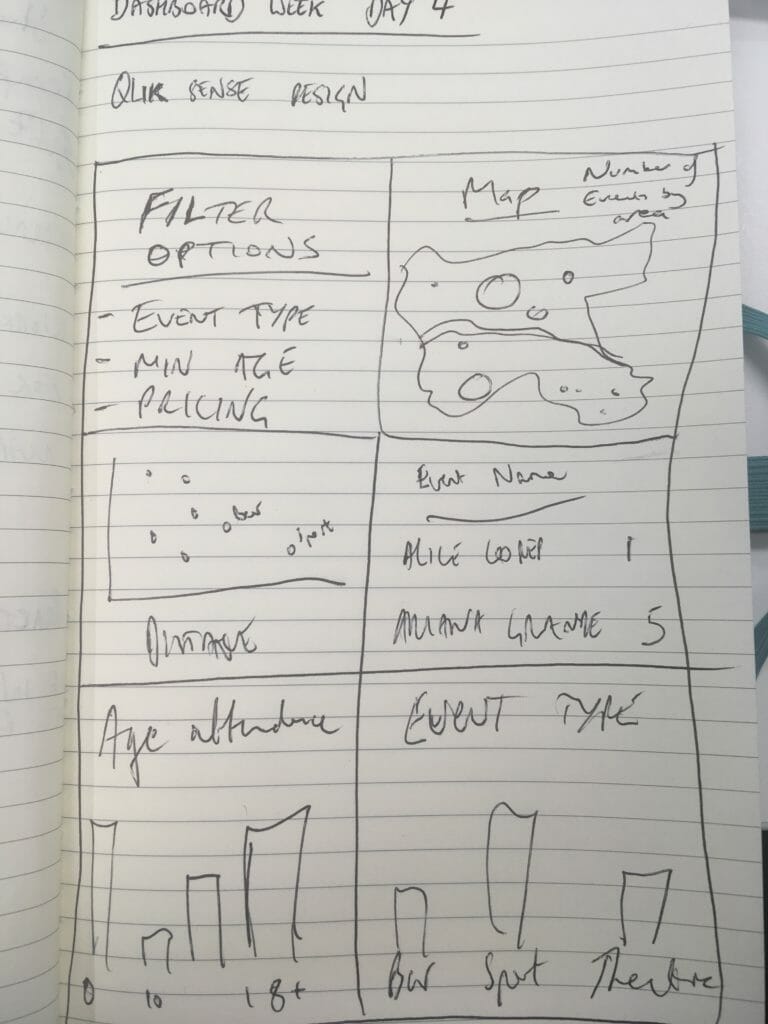 DASHBOARD WEEK DAY 4
QLIK SENSE DESIGN
FILTER
OPTIONS
- EVENT TYPE
- MIN AGE
- PRICING
Map
Number of
Events by
area
Bar
Sport
Event Name
ALICE COOPER 1
ARIANA GRANDE 5
Age attendance
0 10 18+
EVENT TYPE
Bar Sport Theatre